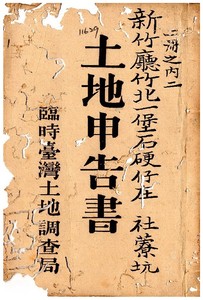 二冊之內二
新竹廳竹北一堡石硬仔庄 社藔坑
11639
土地申告書
臨時臺灣土地調查局